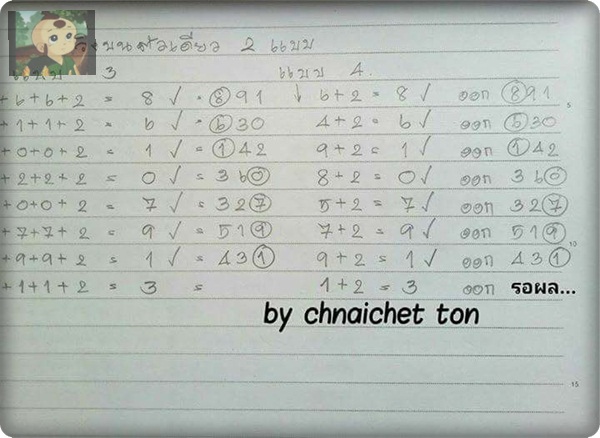 วิ่งบนตัวเดียว 2 แบบ
แบบ 3 แบบ 4.
+6+6+2 = 8 ✓ = 891 ↓ 6+2 = 8 ✓ ออก 891
+1+1+2 = 6 ✓ = 630 4+2 = 6 ✓ ออก 630
+0+0+2 = 1 ✓ = 142 9+2 = 1 ✓ ออก 142
+2+2+2 = 0 ✓ = 360 8+2 = 0 ✓ ออก 360
+0+0+2 = 7 ✓ = 327 5+2 = 7 ✓ ออก 327
+7+7+2 = 9 ✓ = 519 7+2 = 9 ✓ ออก 519
+9+9+2 = 1 ✓ = 431 9+2 = 1 ✓ ออก 431
+1+1+2 = 3 = 1+2 = 3 ออก รอผล...
by chnaichet ton